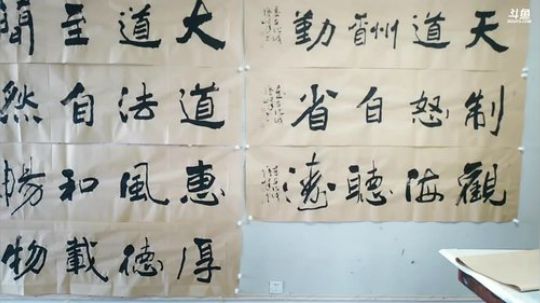 天道酬勤
制怒自省
觀海聽濤
大道至簡
道法自然
惠風和暢
厚德載物
斗鱼